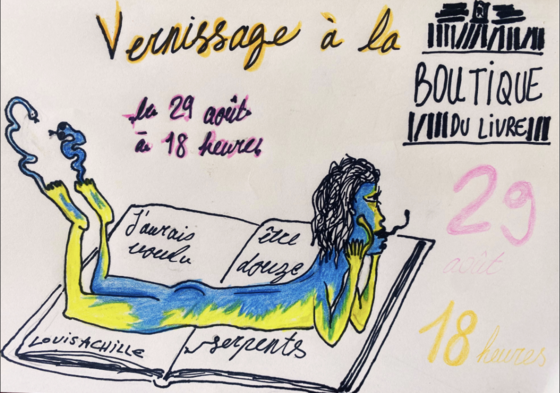 Vernissage à la
BOUTIQUE
DU LIVRE
le 29 août
à 18 heures
J'aurais
voulu
être
douze
serpents
LOUISACHILLE
29
août
18 heures